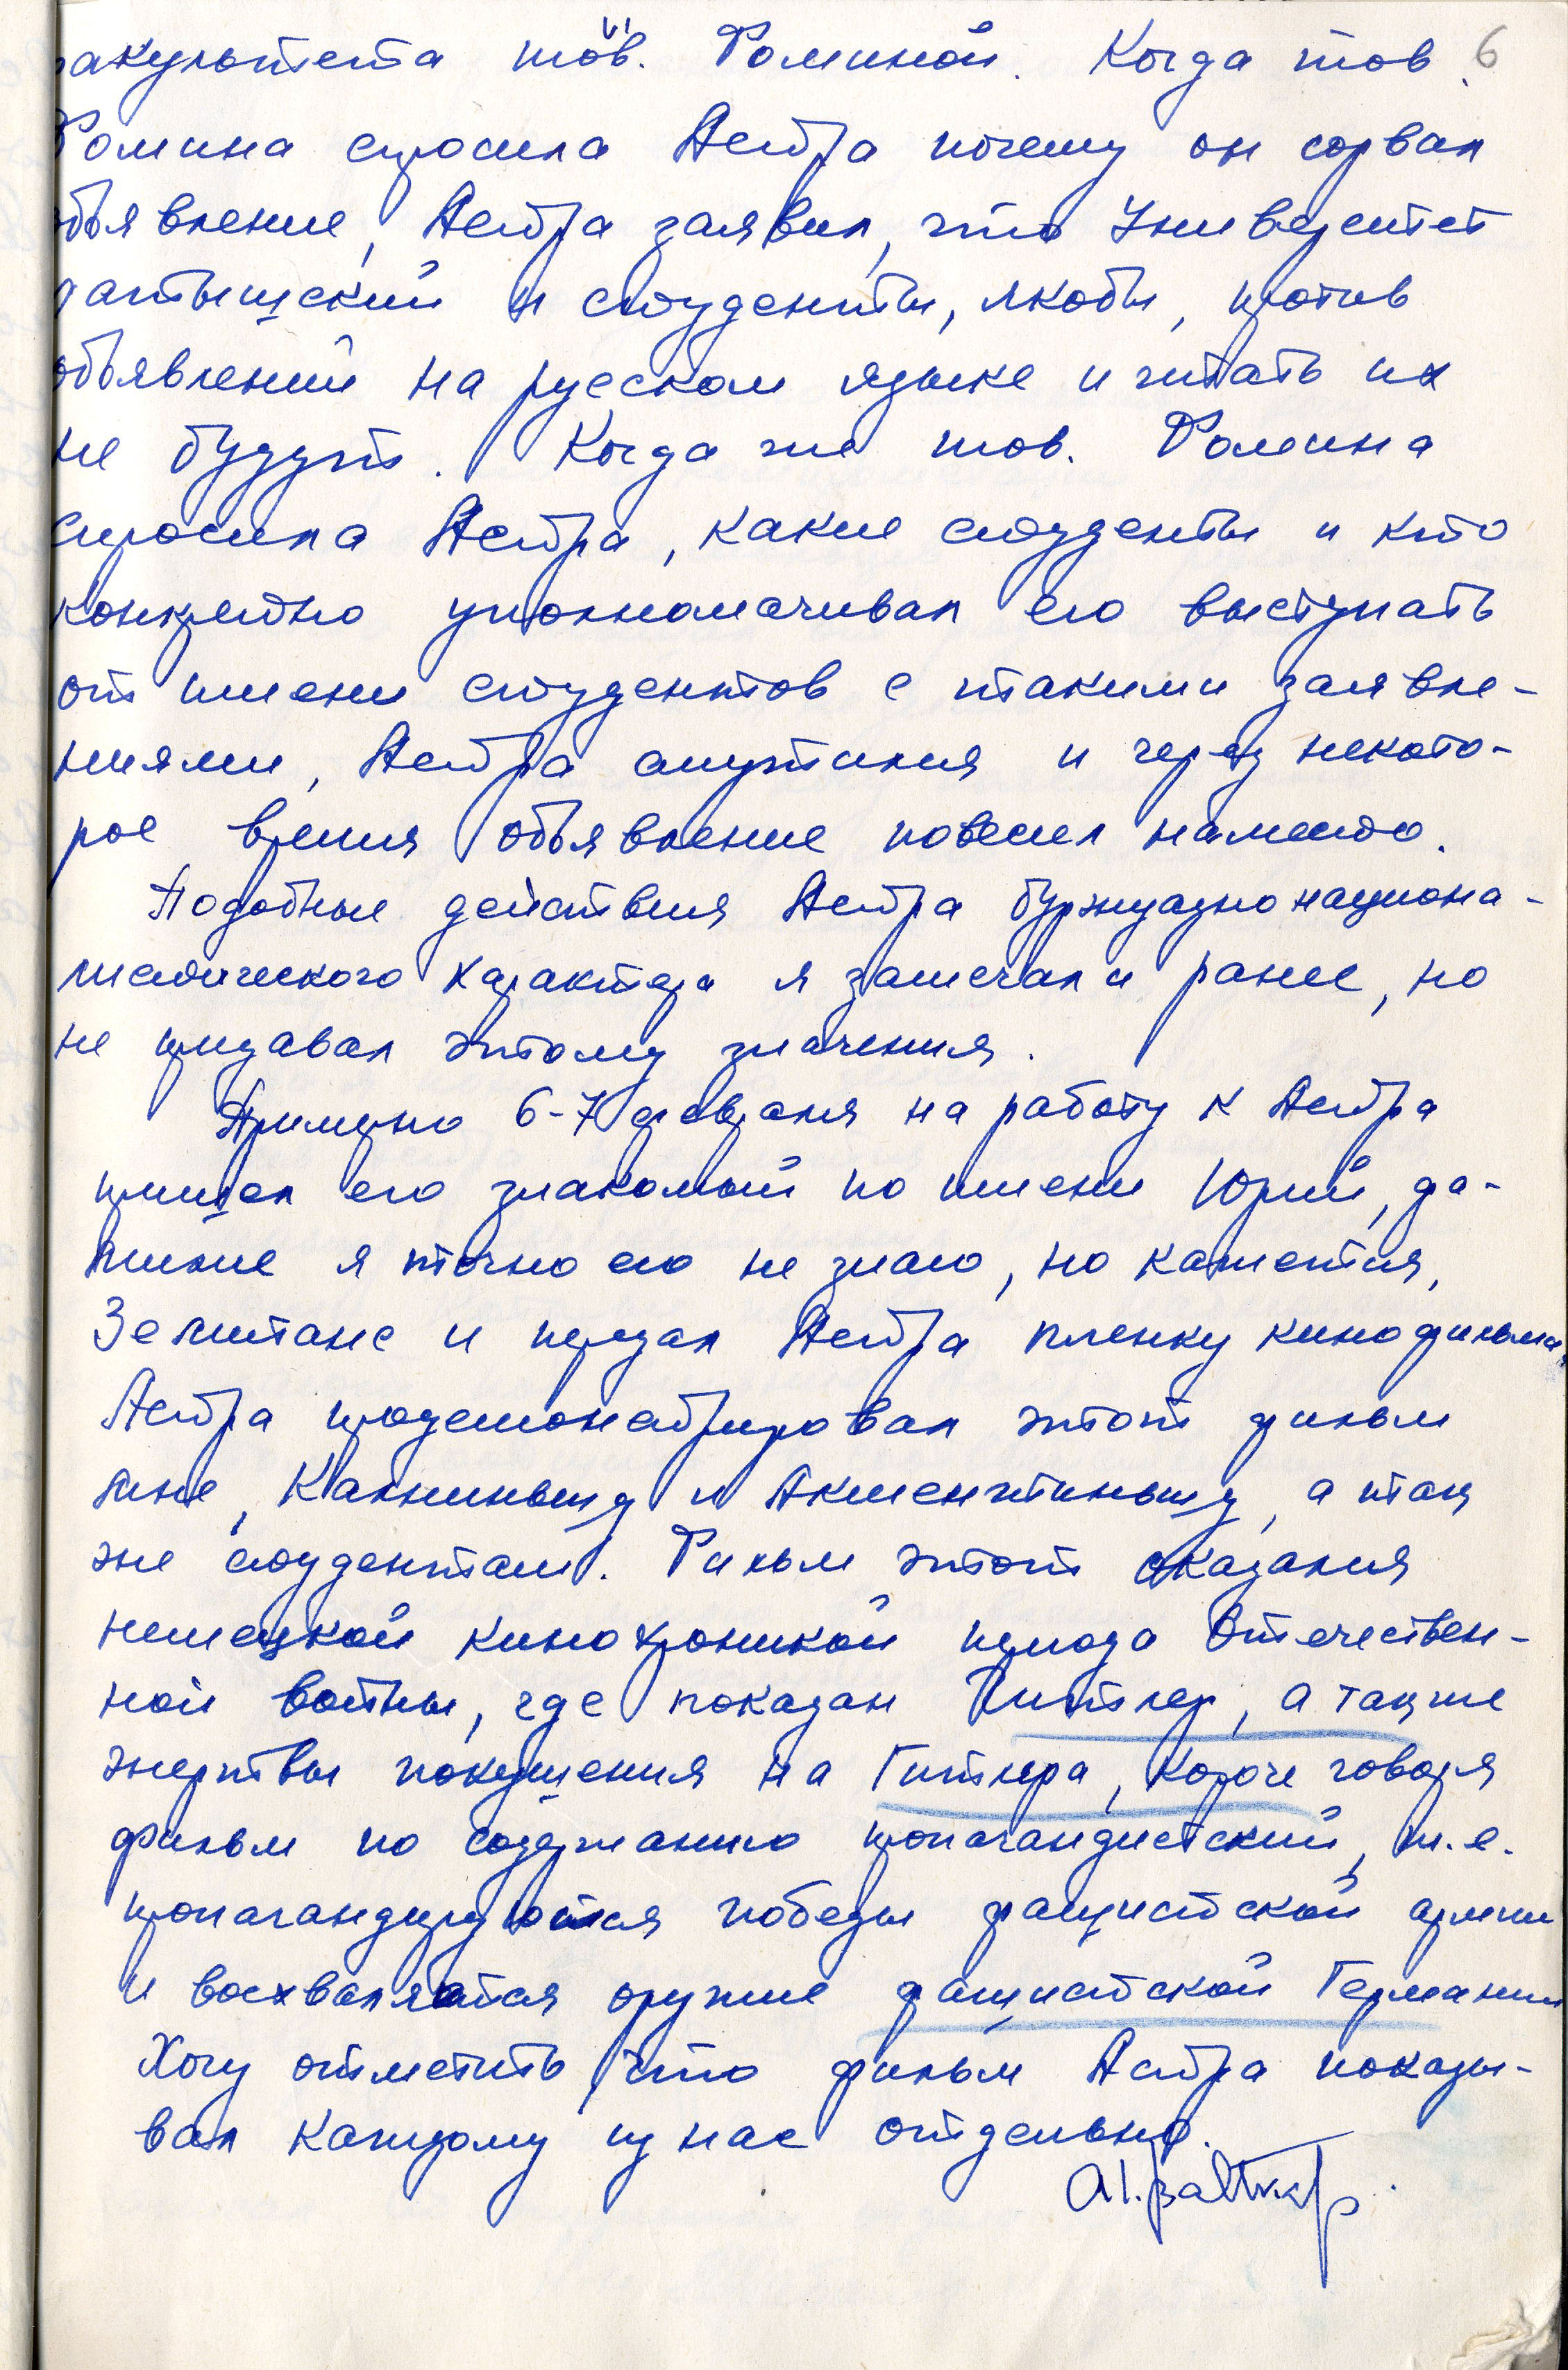 факультета тов. Фоминой. Когда тов. 6
Фомина спросила Астра почему он сорвал
объявление, Астра заявил, что Университет
латышский и студенты, якобы, против
объявлений на русском языке и читать их
не будут. Когда же тов. Фомина
спросила Астра, какие студенты и кто
конкретно уполномачивал его выступать
от имени студентов с такими заявле-
ниями, Астра смутился и через некото-
рое время объявление повесил наместо.
Подобные действия Астра буржуазнонациона-
листического характера я замечал и ранее, но
не придавал этому значения.
Примерно 6-7 февраля на работу к Астра
пришел его знакомый по имени Юрий, фа-
милие я точно его не знаю, но кажется,
Земитанс и передал Астра пленку кинофильма.
Астра продемонстрировал этот фильм
мне, Калниньшу и Акментиньшу, а так
же студентам. Фильм этот оказался
немецкой кинохроникой периода Отечествен-
ной войны, где показан Гитлер, а также
жертвы покушения на Гитлера, короче говоря
фильм по содержанию пропагандистский, т.е.
пропагандируются победы фашистской армии
и восхваляется оружие фашистской Германии
Хочу отметить что фильм Астра показы-
вал каждому из нас отдельно.